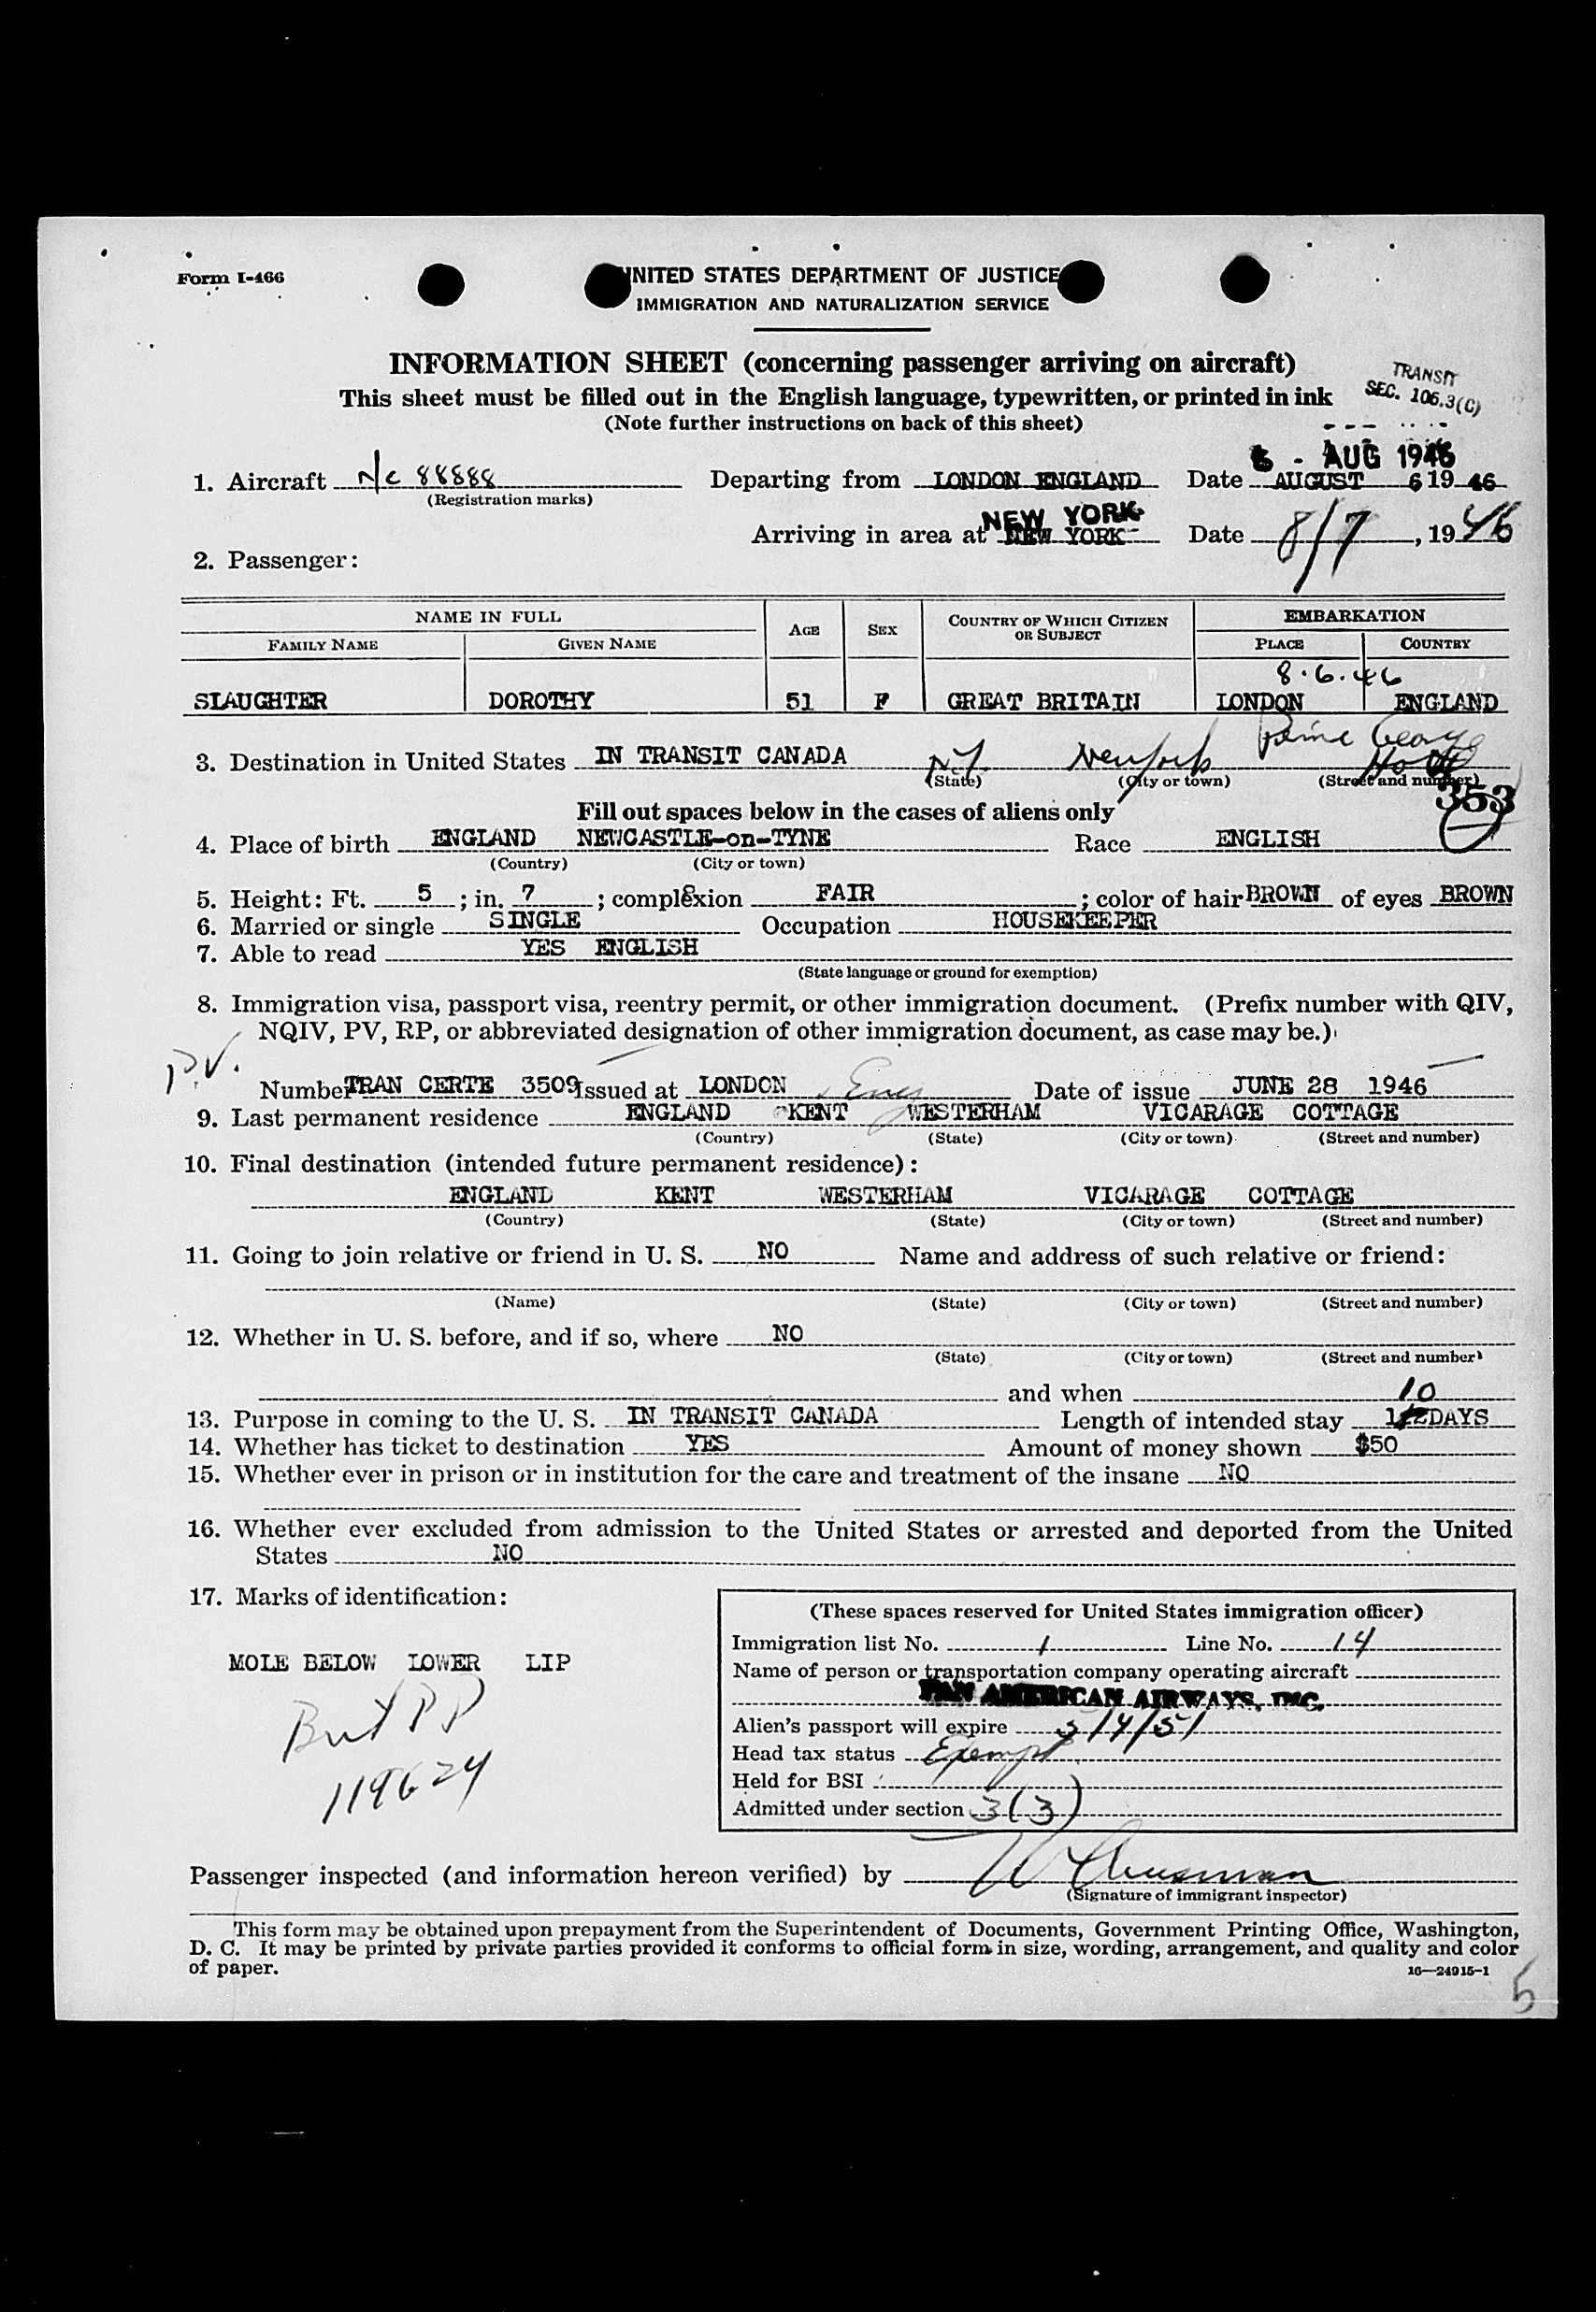 Form I-466
UNITED STATES DEPARTMENT OF JUSTICE
IMMIGRATION AND NATURALIZATION SERVICE
INFORMATION SHEET (concerning passenger arriving on aircraft)
This sheet must be filled out in the English language, typewritten, or printed in ink
(Note further instructions on back of this sheet)
TRANSIT
SEC. 106.3(C)
- AUG 1946
1. Aircraft Nc 88888 Departing from LONDON ENGLAND Date AUGUST 6 19 46
(Registration marks)
NEW YORK
Arriving in area at NEW YORK Date 8/7, 19 46
2. Passenger:
NAME IN FULL AGE SEX COUNTRY OF WHICH CITIZEN OR SUBJECT EMBARKATION
FAMILY NAME GIVEN NAME PLACE COUNTRY
8.6.46
SLAUGHTER DOROTHY 51 F GREAT BRITAIN LONDON ENGLAND
3. Destination in United States IN TRANSIT CANADA NY New York Prince George Hotel
(State) (City or town) (Street and number)
353
Fill out spaces below in the cases of aliens only
4. Place of birth ENGLAND NEWCASTLE-on-TYNE Race ENGLISH
(Country) (City or town)
5. Height: Ft. 5 ; in. 7 ; complexion FAIR ; color of hair BROWN of eyes BROWN
6. Married or single SINGLE Occupation HOUSEKEEPER
7. Able to read YES ENGLISH
(State language or ground for exemption)
8. Immigration visa, passport visa, reentry permit, or other immigration document. (Prefix number with QIV,
NQIV, PV, RP, or abbreviated designation of other immigration document, as case may be.)
P.V.
Number TRAN CERTE 3509 Issued at LONDON Eng Date of issue JUNE 28 1946
9. Last permanent residence ENGLAND KENT WESTERHAM VICARAGE COTTAGE
(Country) (State) (City or town) (Street and number)
10. Final destination (intended future permanent residence):
ENGLAND KENT WESTERHAM VICARAGE COTTAGE
(Country) (State) (City or town) (Street and number)
11. Going to join relative or friend in U. S. NO Name and address of such relative or friend:
(Name) (State) (City or town) (Street and number)
12. Whether in U. S. before, and if so, where NO
(State) (City or town) (Street and number)
and when
10
13. Purpose in coming to the U. S. IN TRANSIT CANADA Length of intended stay DAYS
14. Whether has ticket to destination YES Amount of money shown $50
15. Whether ever in prison or in institution for the care and treatment of the insane NO
16. Whether ever excluded from admission to the United States or arrested and deported from the United
States NO
17. Marks of identification:
MOLE BELOW LOWER LIP
Brit PP
119624
(These spaces reserved for United States immigration officer)
Immigration list No. 1 Line No. 14
Name of person or transportation company operating aircraft
PAN AMERICAN AIRWAYS, INC.
Alien's passport will expire 3/4/51
Head tax status Exempt
Held for BSI
Admitted under section 3(3)
Passenger inspected (and information hereon verified) by
(Signature of immigrant inspector)
This form may be obtained upon prepayment from the Superintendent of Documents, Government Printing Office, Washington,
D. C. It may be printed by private parties provided it conforms to official form in size, wording, arrangement, and quality and color
of paper.
16—24915-1
5